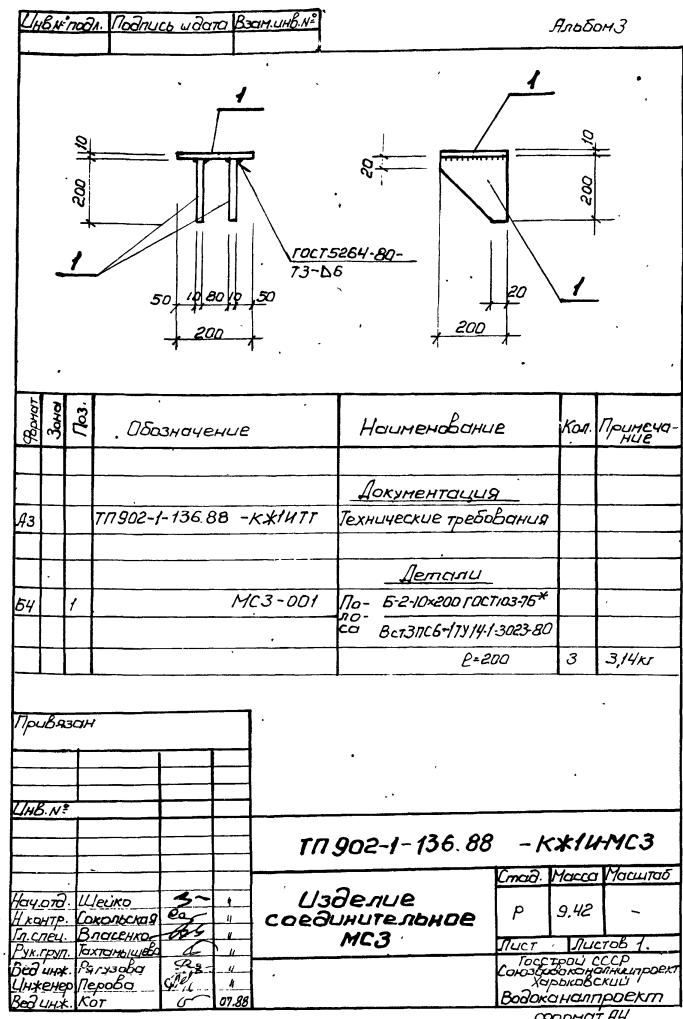 Инв.№ подл. Подпись и дата Взам.инв.№
Альбом 3
1
1
10
200
20
10
200
1
ГОСТ 5264-80-
Т3-⊿6
50 10 80 10 50
200
20
200
1
Формат Зона Поз. Обозначение Наименование Кол. Примеча-
ние
Документация
А3 ТП 902-1-136.88 -КЖ1ИТТ Технические требования
Детали
Б4 1 МС3-001 По- Б-2-10×200 ГОСТ 103-76*
ло-
са Вст3пс6-1 ТУ 14-1-3023-80
ℓ=200 3 3,14кг
Привязан
Инв.№
ТП 902-1-136.88 -КЖ1И-МС3
Изделие
соединительное
МС3
Стад. Масса Масштаб
Р 9.42 -
Лист Листов 1.
Госстрой СССР
Союзводоканалниипроект
Харьковский
Водоканалпроект
Нач.отд. Шейко "
Н.контр. Сокольская "
Гл.спец. Власенко "
Рук.груп. Тахтамышева "
Вед инж. Рягузова "
Инженер Перова "
Вед инж. Кот 07.88
формат А4